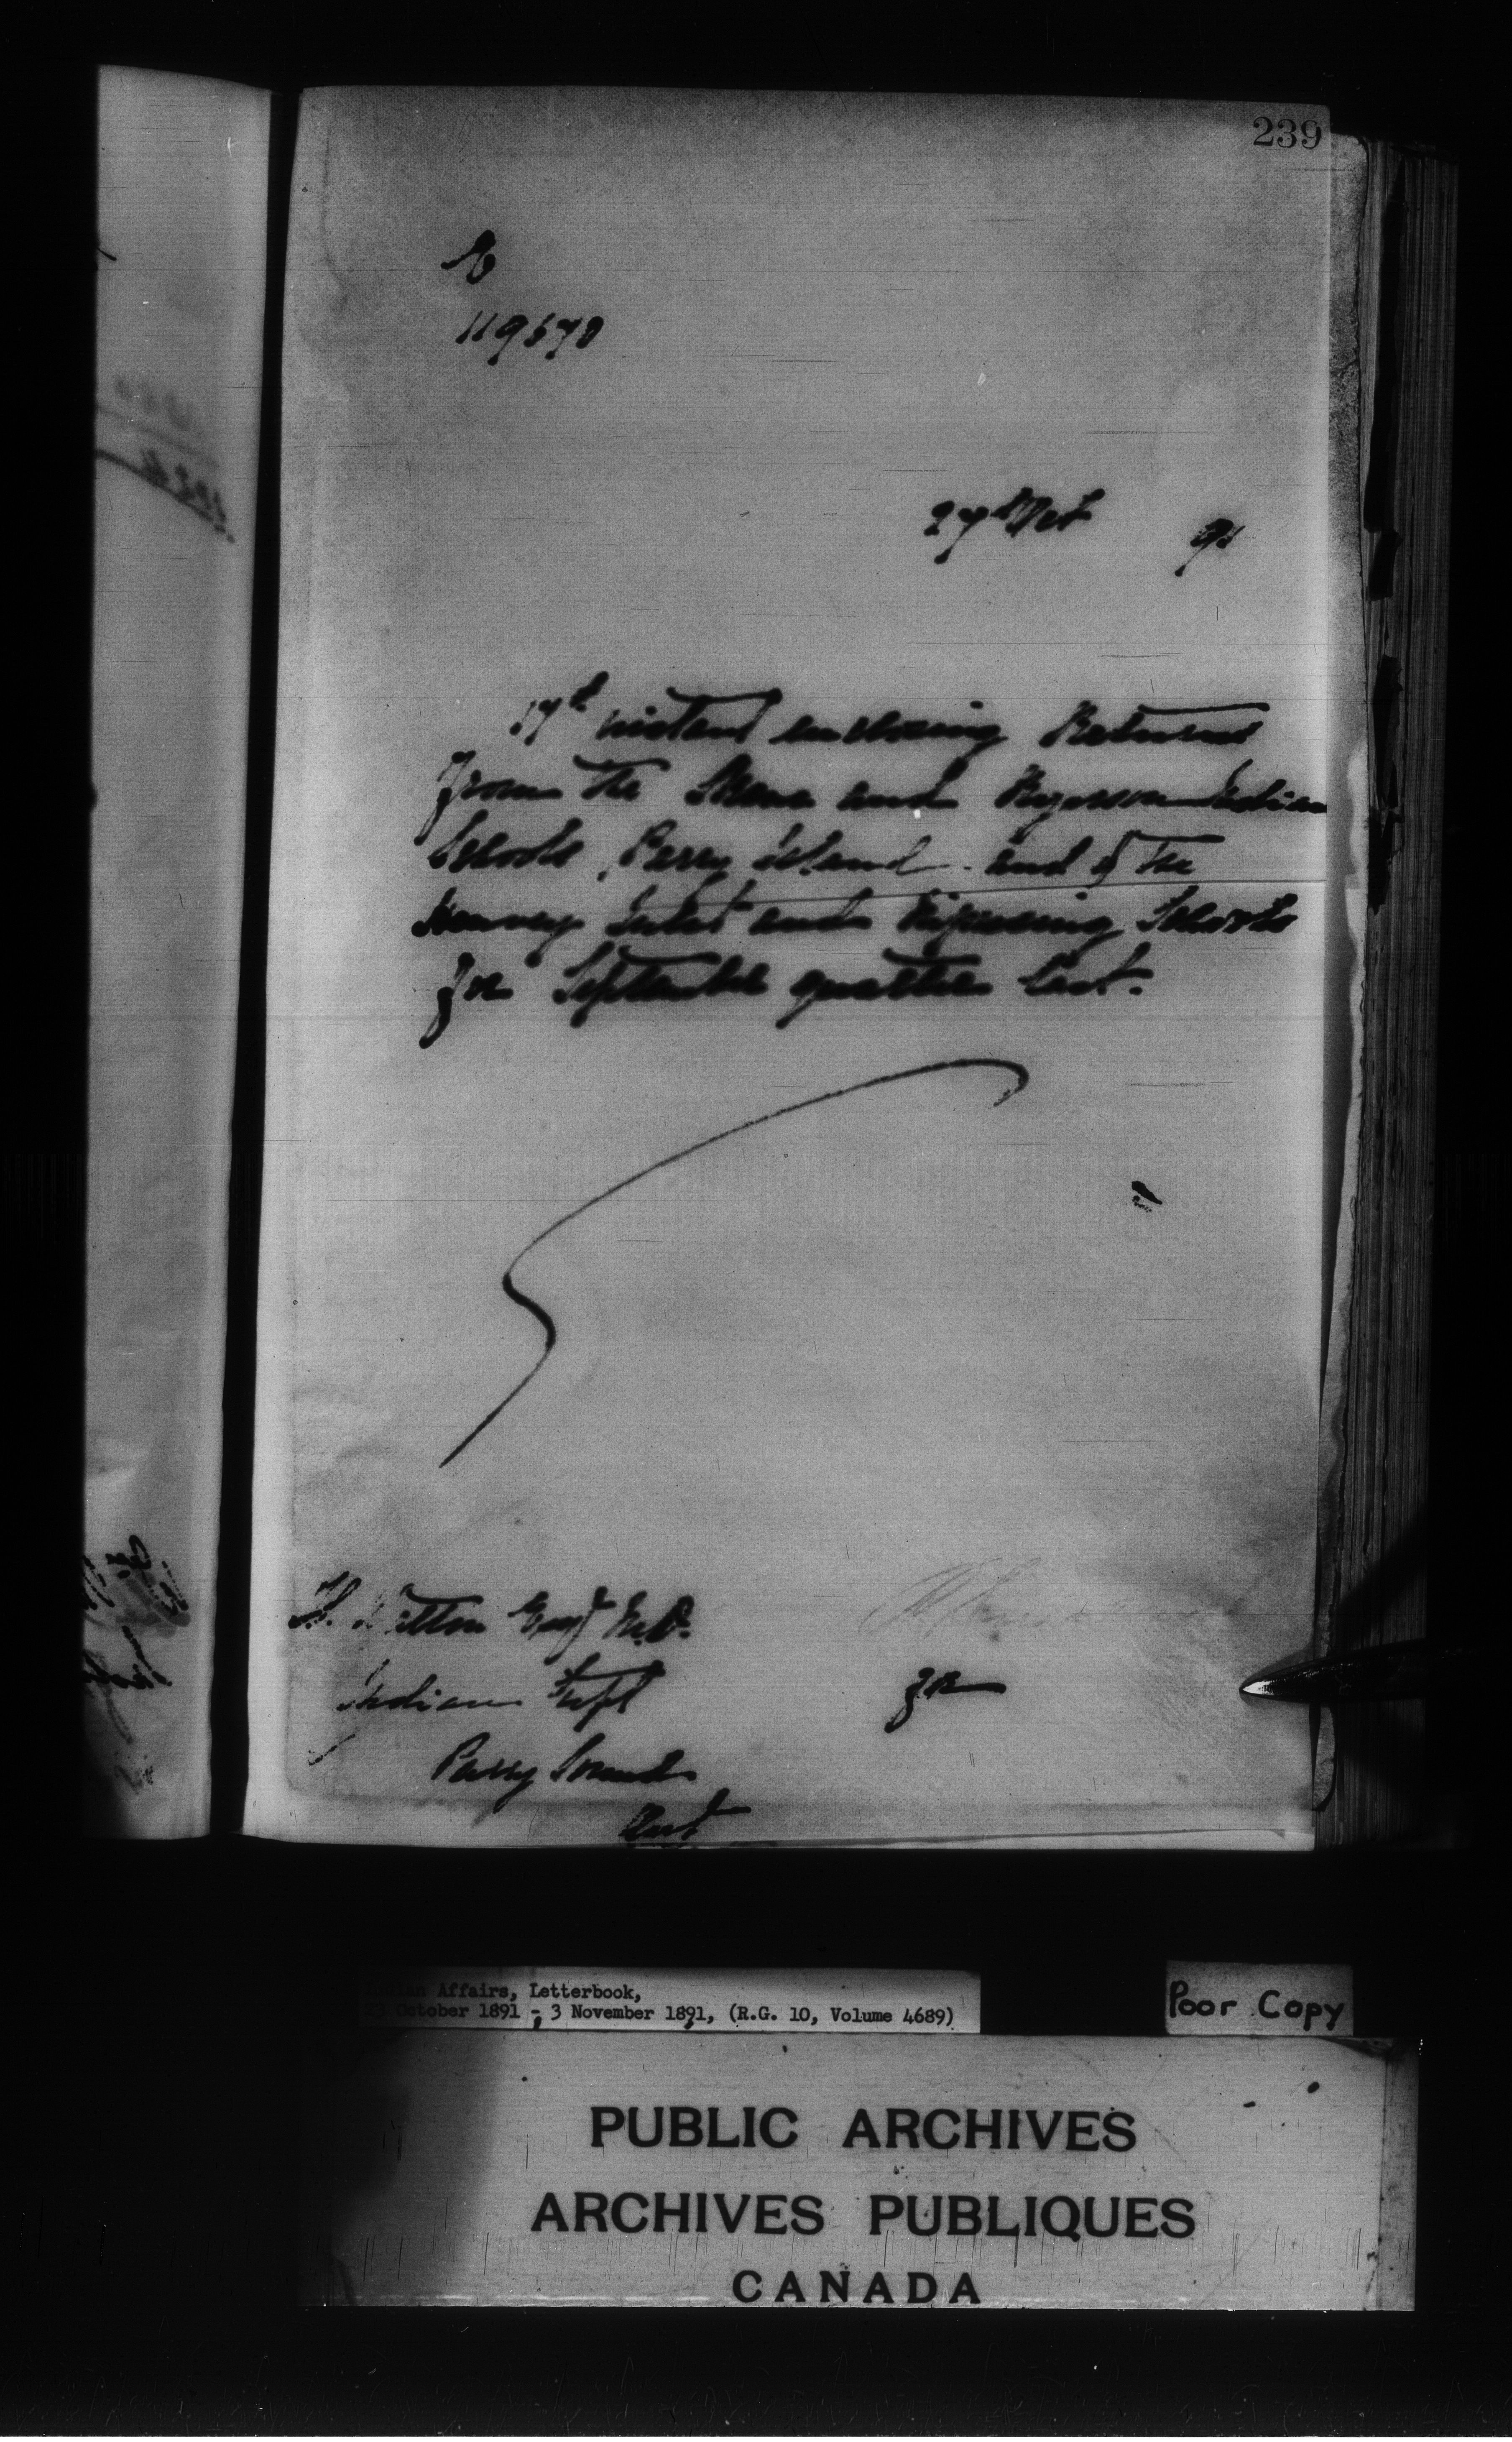 239
119570
27th Oct 91
17th instant enclosing Returns
from the Skene and Ryerson Indian
Schools, Parry Island and of the
Henvey Inlet and Nipissing Schools
for September quarter last.
Walton Esq M.D.
Indian Supt
Parry Sound
Ont
Affairs, Letterbook,
23 October 1891 - 3 November 1891, (R.G. 10, Volume 4689)
Poor Copy
PUBLIC ARCHIVES
ARCHIVES PUBLIQUES
CANADA